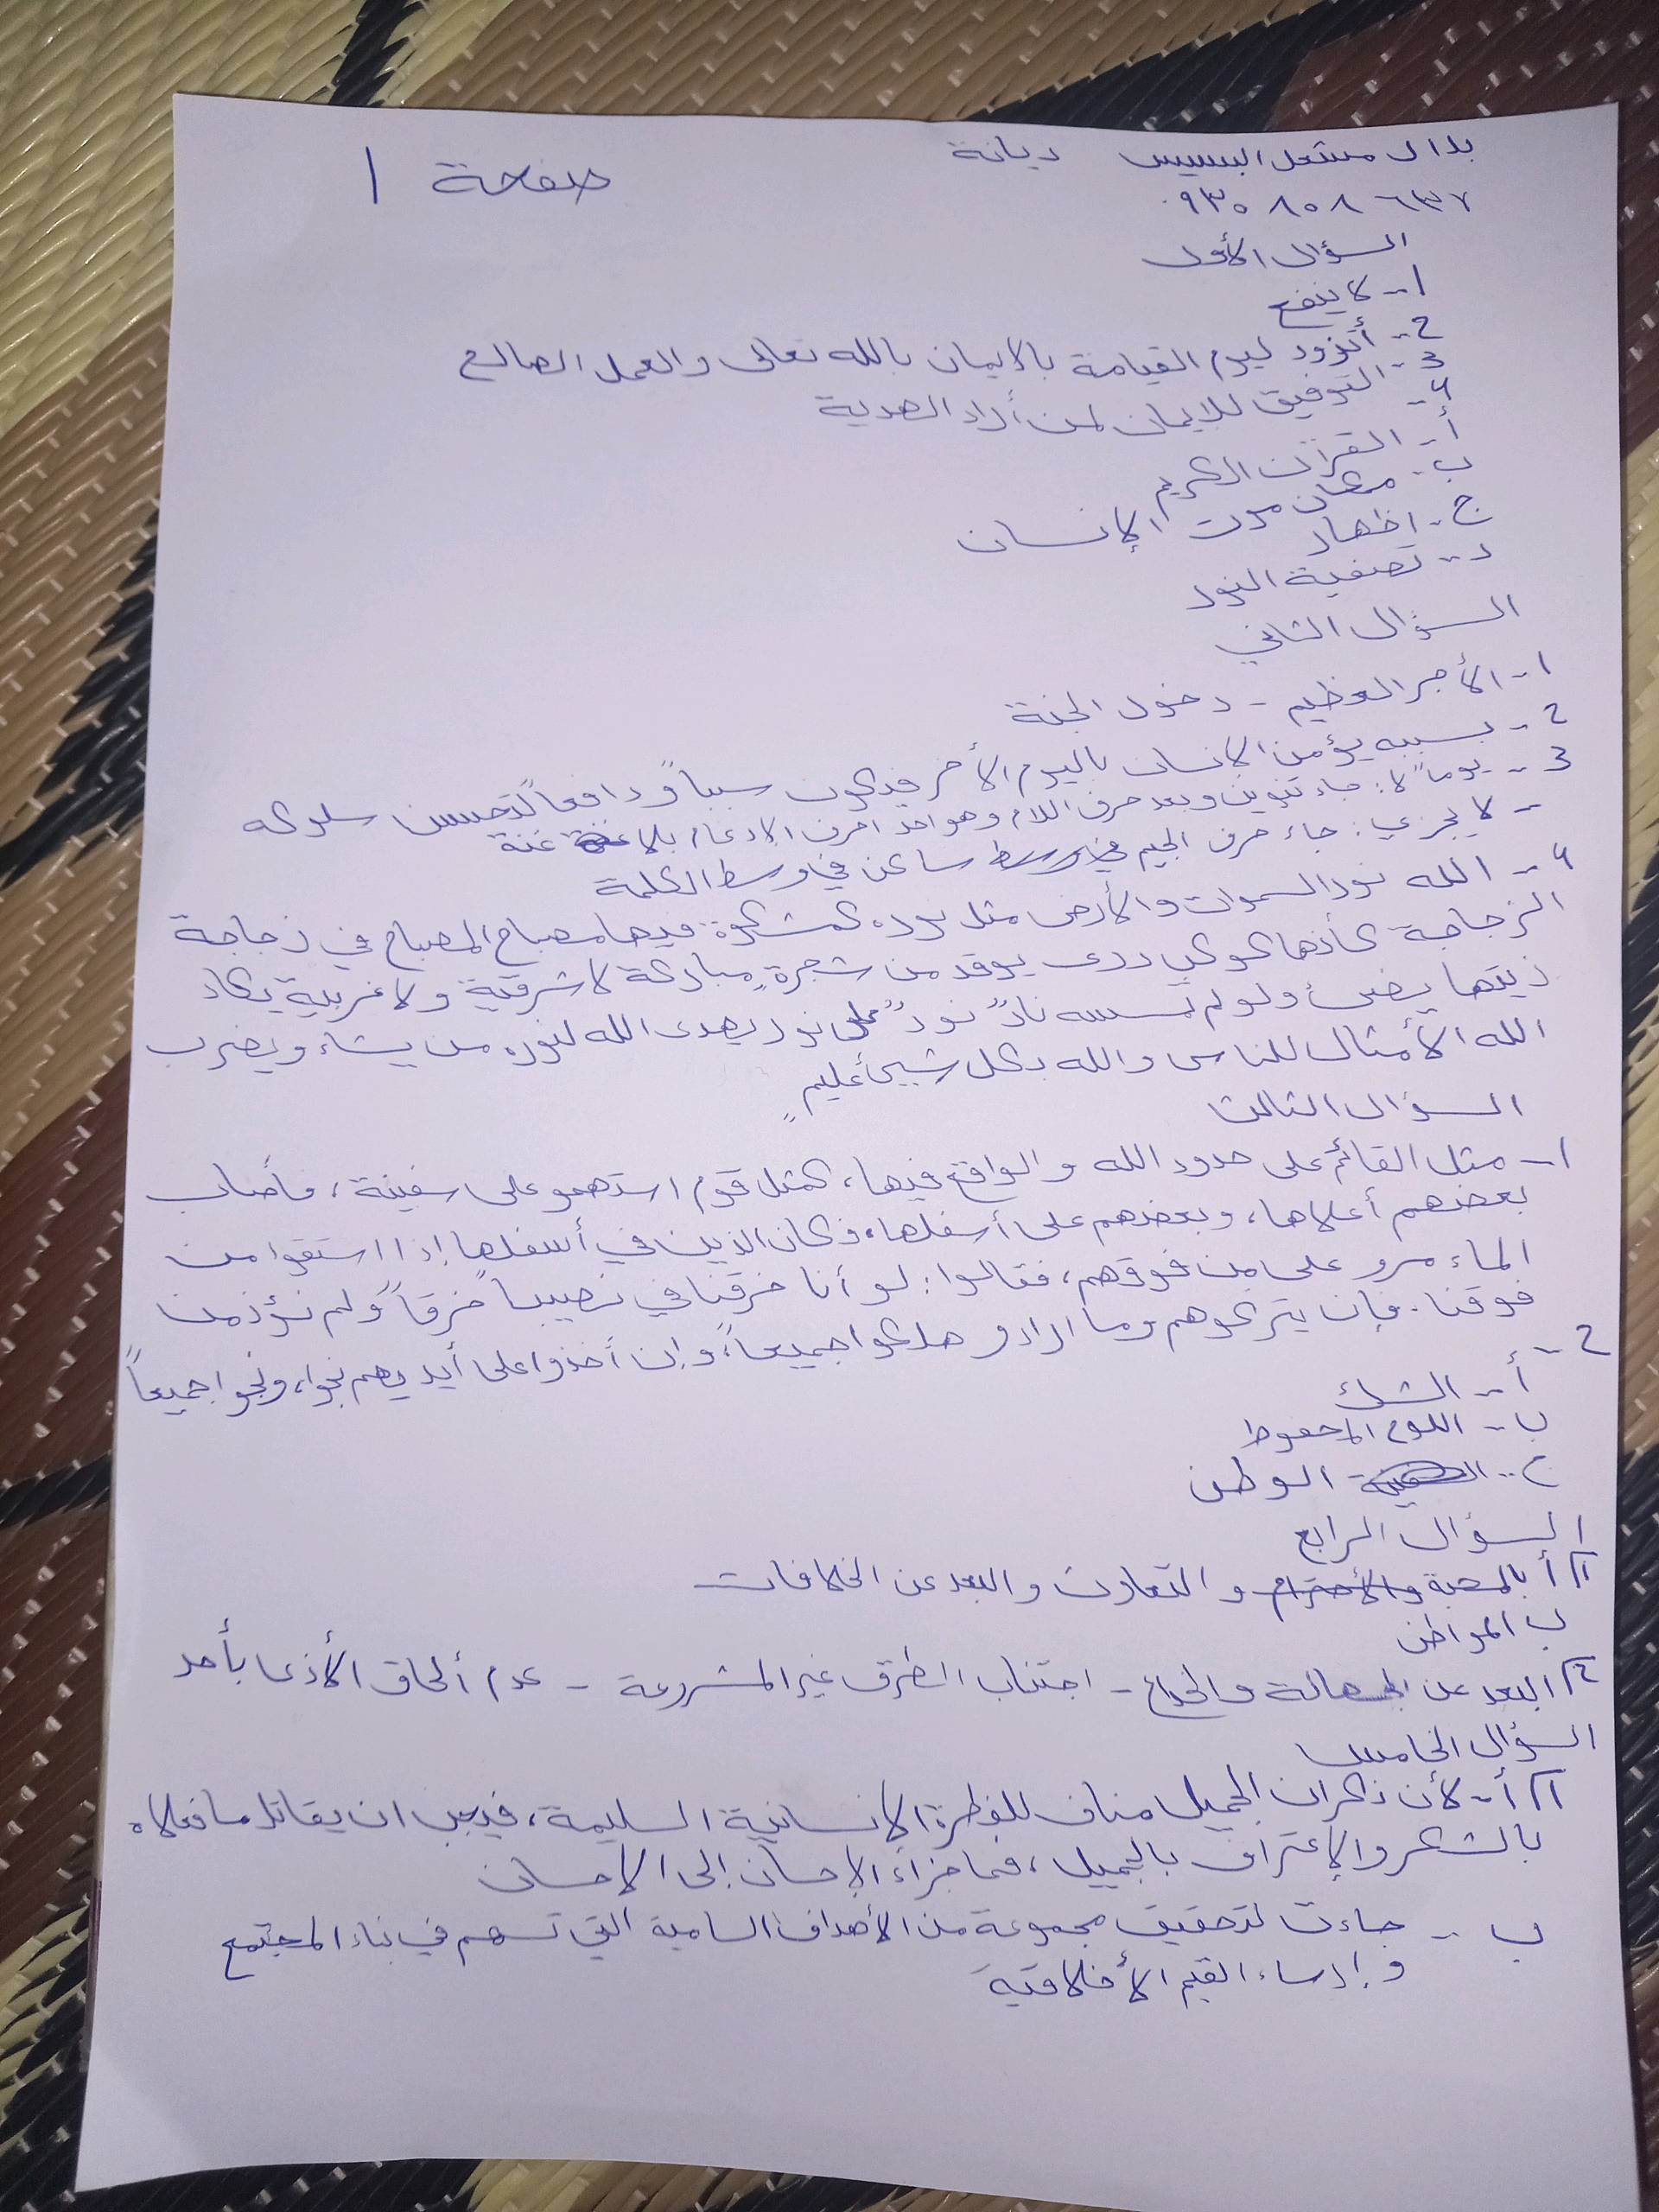 بلال مشعل البسيس ديانة
صفحة ١
٠٩٣٥٨٥٨٦٣٧
السؤال الأول
١- لا ينفع
2- أتزود ليوم القيامة بالايمان بالله تعالى والعمل الصالح
3- التوفيق للايمان لمن أراد الهدية
4-
أ- القرآن الكريم
ب- مكان موت الإنسان
ج- اظهار
د- تصفية النور
السؤال الثاني
١- الأجر العظيم - دخول الجنة
2- بسببه يؤمن الإنسان باليوم الأخر فيكون سبباً ودافعاً لتحسين سلوكه
3- يوماً لا: جاء تنوين وبعد حرف اللام وهو احد احرف الادغام بلا غنة
- لا يجزي: جاء حرف الجيم ساكن في وسط الكلمة
4- الله نور السموات والأرض مثل نوره كمشكوة فيها مصباح المصباح في زجاجة
الزجاجة كأنها كوكب دري يوقد من شجرةٍ مباركة لا شرقية ولا غربية يكاد
زيتها يضئ ولو لم تمسسه نارٌ نورٌ على نور يهدى الله لنوره من يشاء ويضرب
الله الأمثال للناس والله بكل شيئ عليمٌ
السؤال الثالث
١- مثل القائم على حدود الله والواقع فيها، كمثل قوم استهمو على سفينة، فأصاب
بعضهم أعلاها، وبعضهم على أسفلها، فكان الذين في أسفلها إذا استقوا من
الماء مرو على من فوقهم، فقالوا: لو أنا خرقنا في نصيبنا خرقاً ولم نؤذ من
فوقنا. فإن يتركوهم وما ارادو هلكوا جميعاً، وإن أخذوا على أيديهم نجوا، ونجوا جميعاً
2-
أ- الشك
ب- اللوح المحفوظ
ج- الوطن
السؤال الرابع
١/ أ بالمحبة والأحترام والتعاون والبعد عن الخلافات
ب المواطن
2/ البعد عن الجهالة والخداع - اجتناب الطرق غير المشروعة - عدم ألحاق الأذى بأحد
السؤال الخامس
١/ أ- لأن نكران الجميل مناف للفطرة الانسانية السليمة، فيجب ان يقابل ما فعلاه
بالشكر والإعتراف بالجميل، فما جزاء الإحسان إلى الاحسان
ب - جاءت لتحقيق مجموعة من الأهداف السامية التي تسهم في بناء المجتمع
وإرساء القيم الأخلاقية